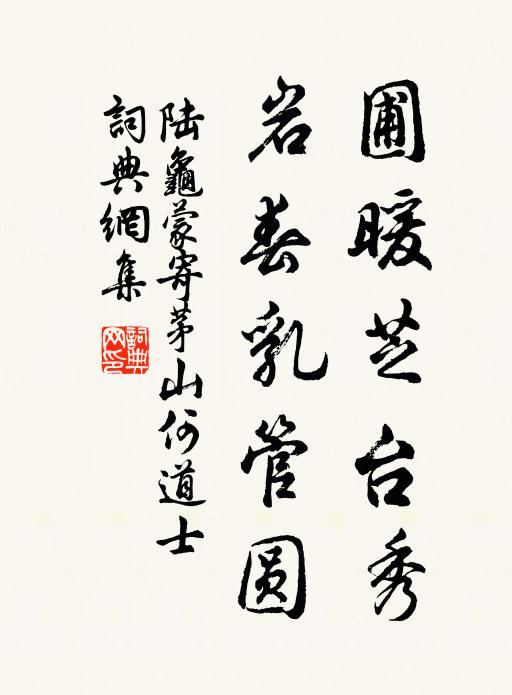 圃暖芝台秀
岩春乳管圆
陆龜蒙寄茅山何道士
詞典網集
詞典網印